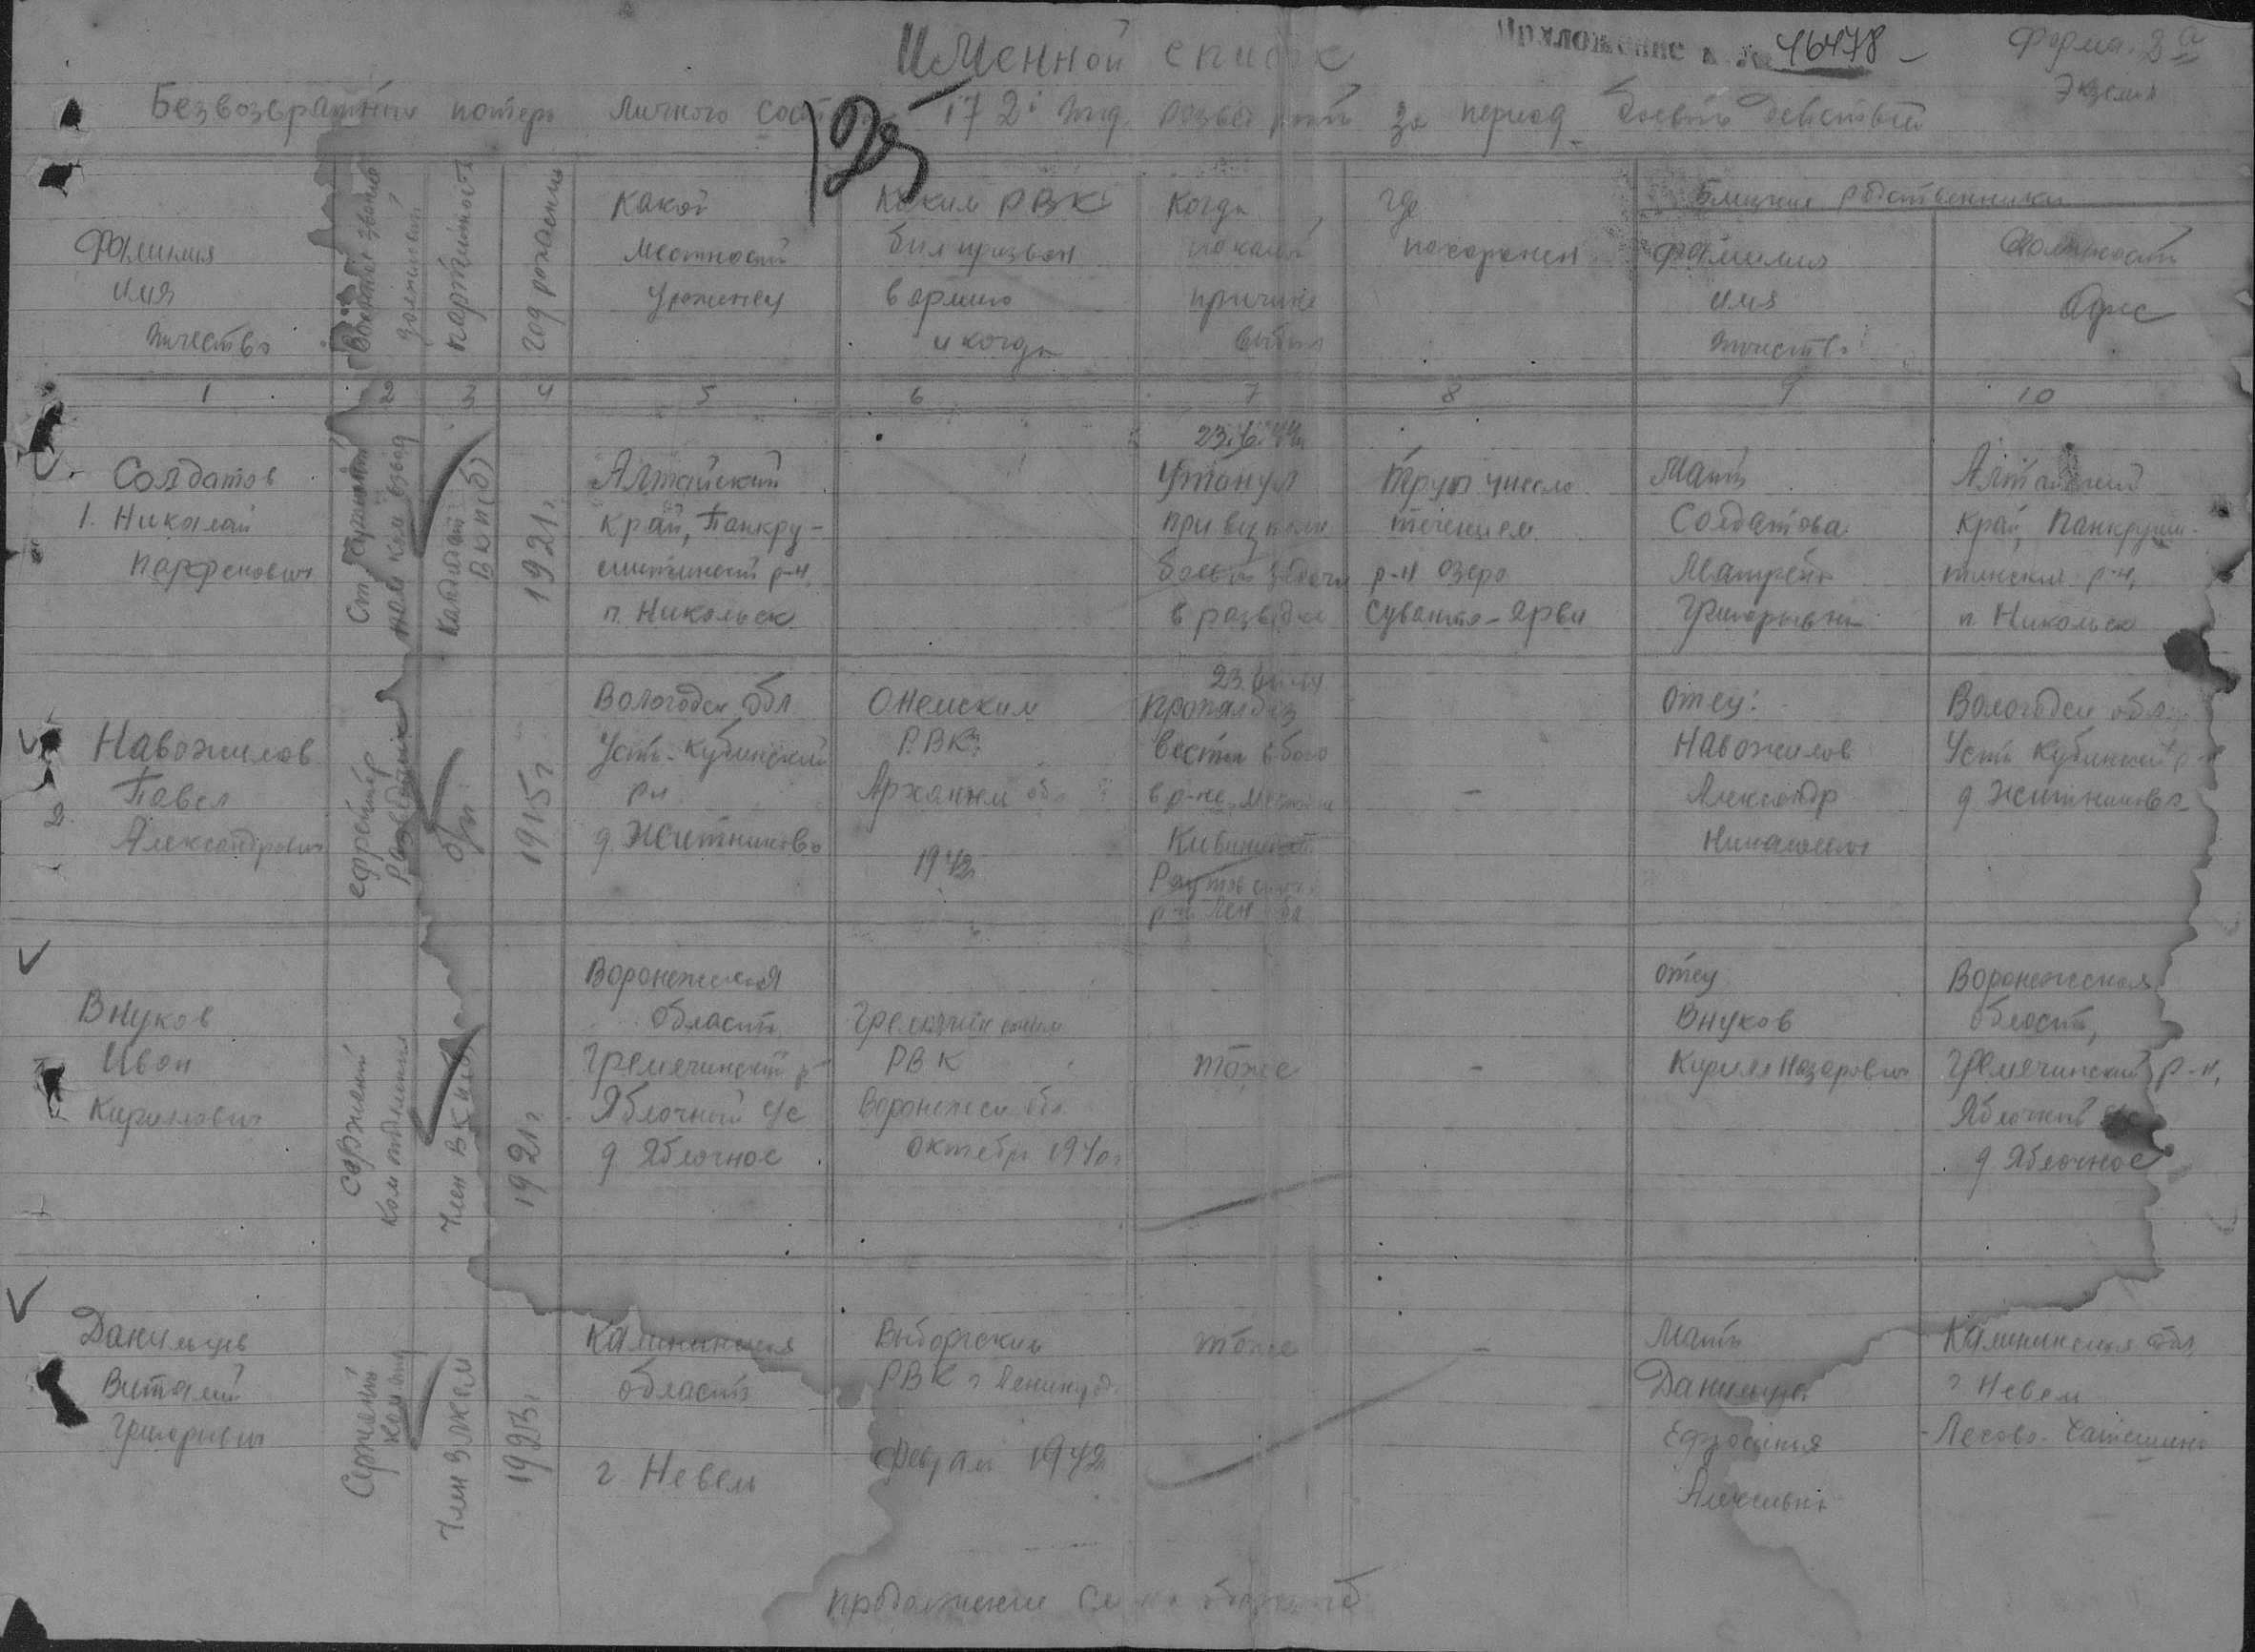 Именной список
Приложение к № 46478
Форма 2а
Экземпл
Безвозвратных потерь личного состава 172й отд. развед роты за период боевых действий
Фамилия
имя
отчество
Военное звание
должность
партийность
год рождения
Какой
местности
уроженец
Каким РВК
был призван
в армию
и когда
Когда
по какой
причине
выбыл
Где
похоронен
Ближние родственники
Фамилия
имя
отчество
Адрес
1 2 3 4 5 6 7 8 9 10
Солдатов
1. Николай
Парфенович
Ст. сержант
пом ком взвод
Кандидат
ВКП(б)
1921г.
Алтайский
край, Панкру-
шихинский р-н,
п. Никольск
23.6.44г
Утонул
при выполн
боевой задачи
в разведке
Труп унесло
течением
р-н озера
Суванто-Ярви
Мать
Солдатова
Матрена
Григорьевна
Алтайский
край, Панкруши-
хинский р-н,
п Никольск
Навожилов
2. Павел
Александрович
ефрейтор
Разведчик
б/п
1915г
Вологодск обл
Усть-Кубинский
р-н
д. Житниково
Онежским
РВК
Арханг обл
1942г
Пропал без
вести в бою
в р-не
Раутовский
р-н Лен обл
-
отец:
Навожилов
Александр
Николаевич
Вологодск обл
Усть Кубинский р-н
д Житниково
Внуков
Иван
Кириллович
Сержант
Ком отделения
Член ВКП(б)
1921г.
Воронежская
область
Гремяченский р-
Яблочный с/с
д Яблочное
Гремяченским
РВК
Воронежск обл.
октябрь 1940г
тоже
-
отец
Внуков
Кирилл Назарович
Воронежская
область,
Гремяченский р-н,
Яблочный с/с
д Яблочное
Данильцев
Виталий
Григорьевич
Сержант
Член ВЛКСМ
1923г
Калининская
область
г Невель
Выборгским
РВК г Ленинград
февраль 1942г
тоже
-
Мать
Данильцева
Ефросинья
Алексеевна
Калининская обл,
г Невель
продолжение См на обороте